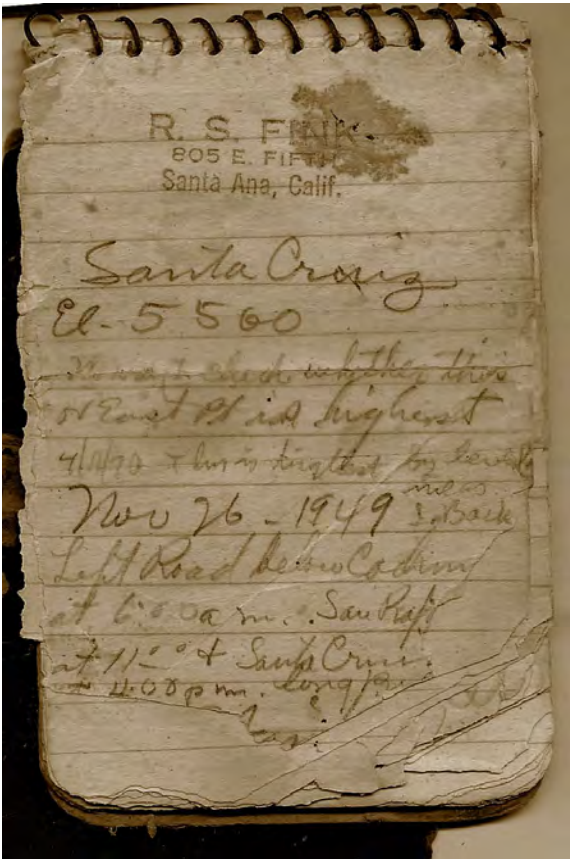 R. S. FINK
805 E. FIFTH
Santa Ana, Calif.
Santa Cruz
El - 5560
check whether this
or East Pk is highest
This is highest by level
Nov 26 - 1949
Left Road below
at 6:00 a m. San Raf
at 11:00 + Santa Cruz
4:00 p m. long